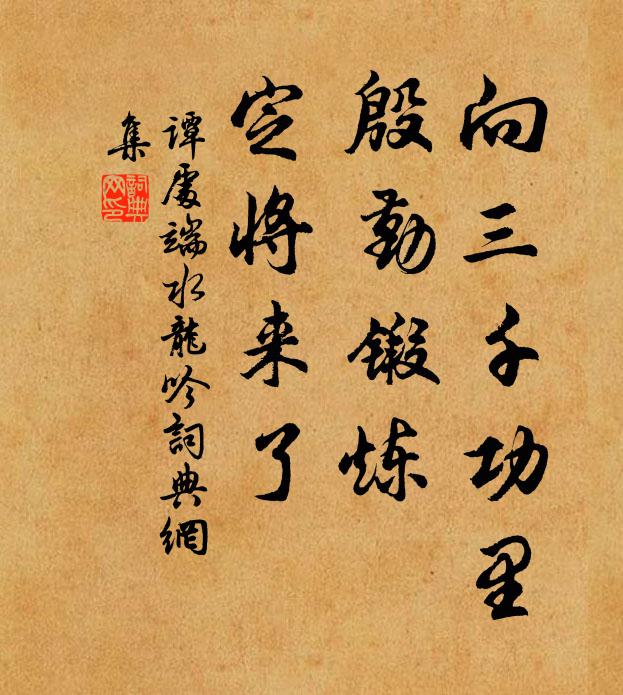 向三千功里
殷勤锻炼
定将来了
谭處端水龍吟詞典網
集
詞典
网印